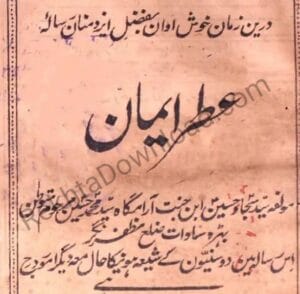 درین زمان خوش اوان بفضل ایزد منان رسالہ
عطر ایمان
مولفہ سید تجاوحسین ابن جنت آرامگاہ سید محمد حسین مرحوم
بہرہ سادات ضلع مظفرنگر
اس رسالہ میں دو سنیوں کے شیعہ ہونیکا حال معہ دیگر امور درج